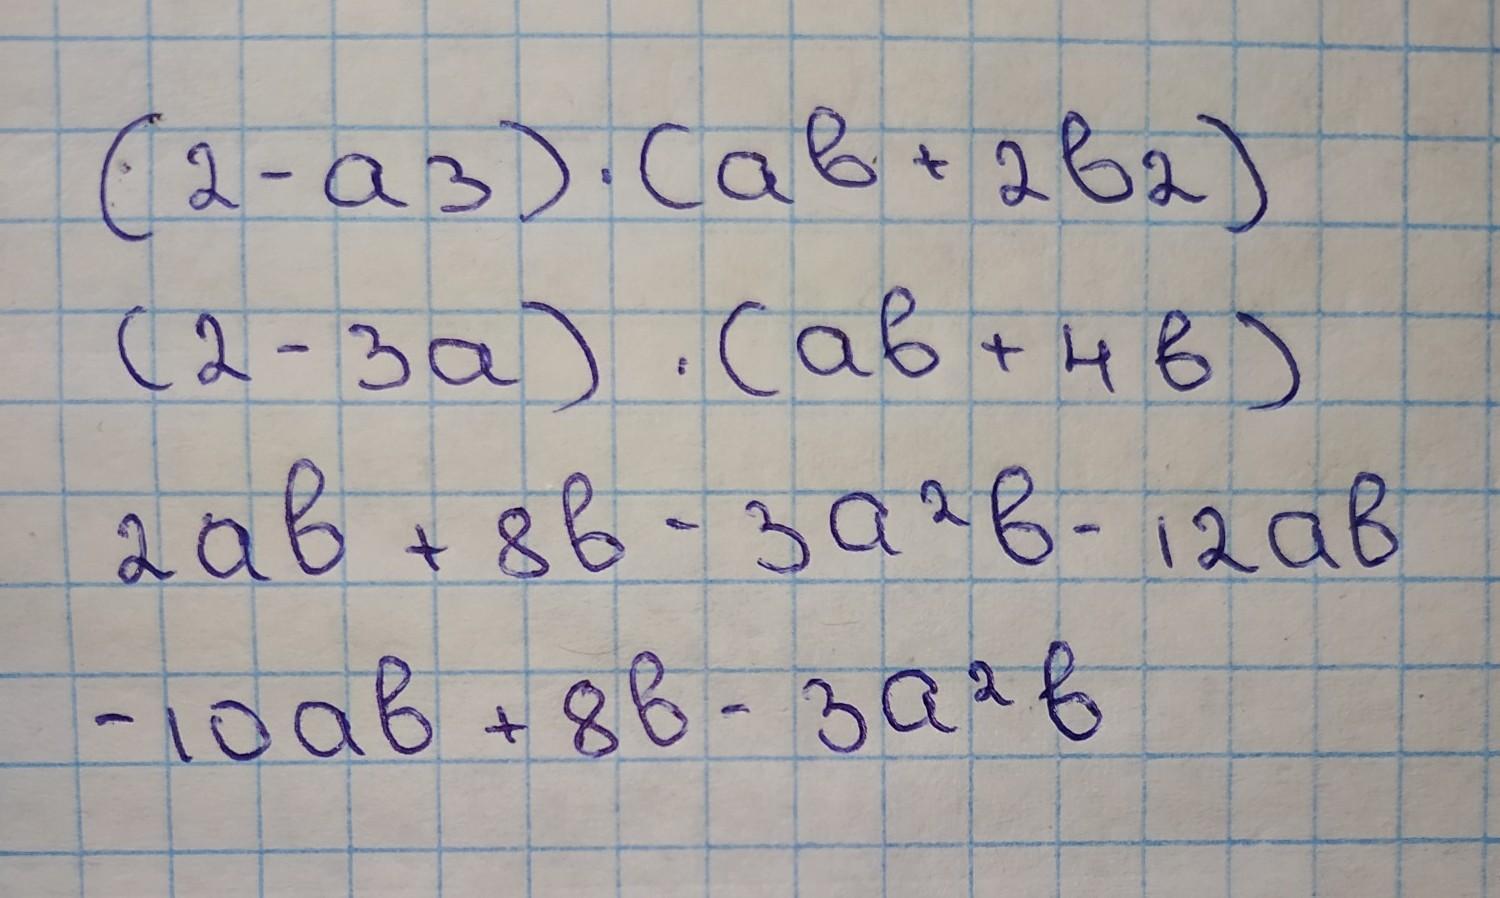 (2-a3)·(ab+2b2)
(2-3a)·(ab+4b)
2ab+8b-3a²b-12ab
-10ab+8b-3a²b